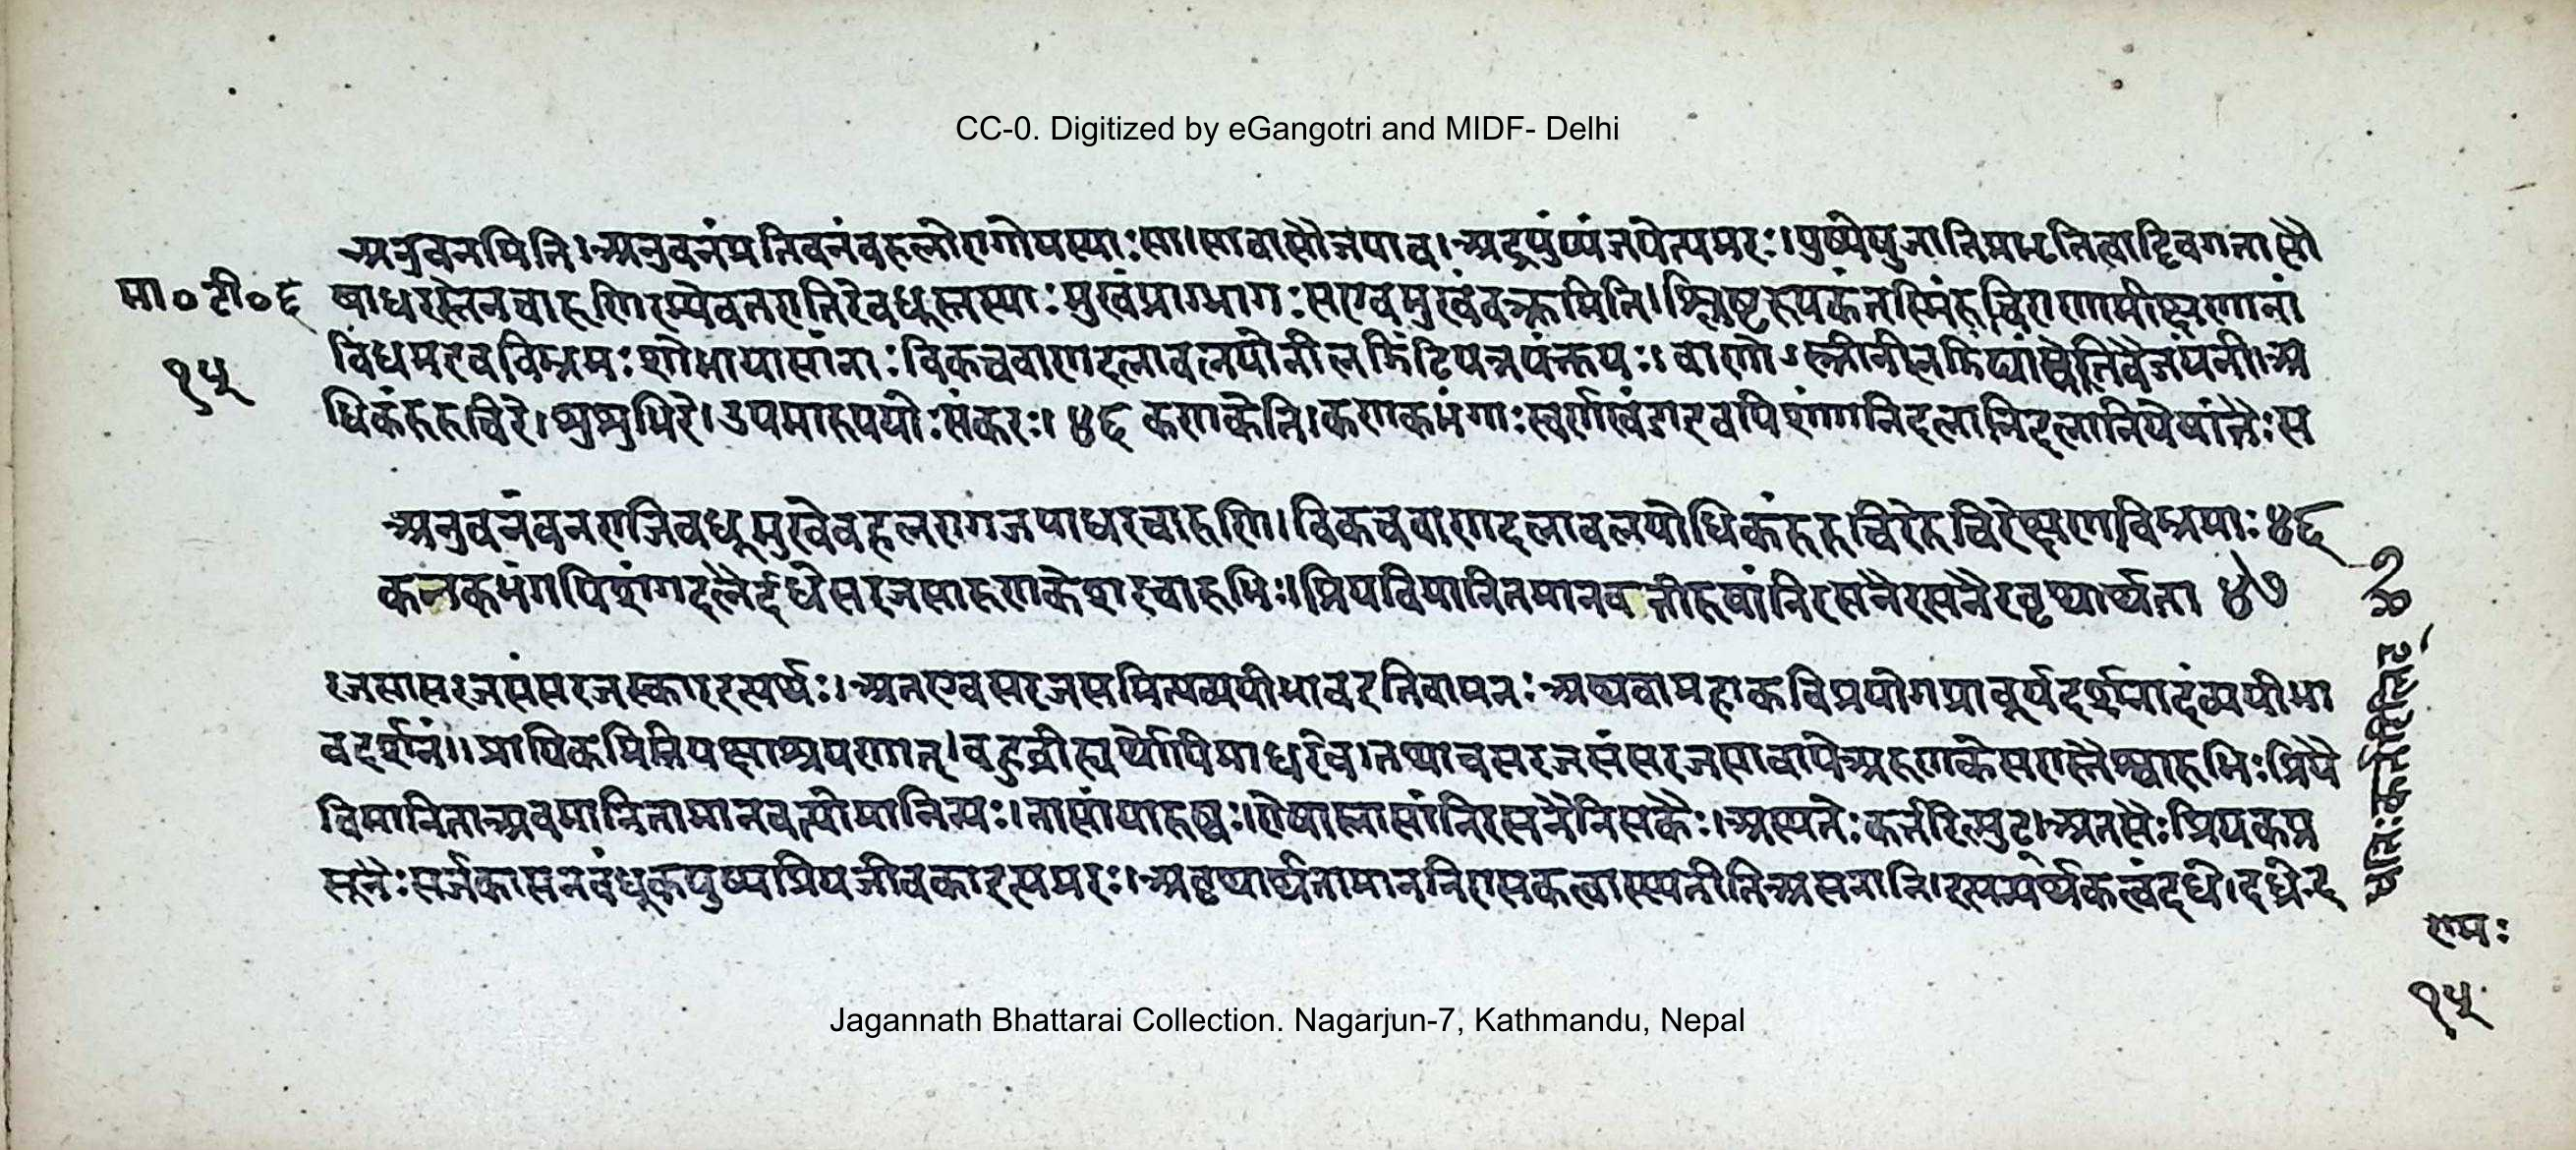 CC-0. Digitized by eGangotri and MIDF- Delhi
अनुवनमिति। अनुवनंप्रतिवनंवहलोरागोयस्याःसा। सावासौजपाव। अद्रपुंष्पंजपेत्यमरः। पुष्पेषुजातिप्रभृतित्वाद्विवगतासौ
मा॰ टी॰ ६ षाधरस्तेनचारुणिरम्येवनराजिरेवधूस्तस्याःमुखंप्राग्भागःसएवमुखंवक्त्रमिति। श्लिष्टरूपकंतस्मिंरुचिराणामीक्षणानां
१५ विभ्रमइवविभ्रमःशोभायासांताःविकचवाणदलावलयोनीलझिंटिपत्रपंक्तयः। वाणोऽस्त्रीनीलझिंट्यांस्त्रेतिवैजयंती। अ
धिकंरुरुचिरे। शुशुभिरे। उपमारुपयोःसंकरः। ४६ कराकेति। कराकभंगाःस्वर्णखंडाइवपिशंगानिदलानिदलानियेषांतैःस
अनुवनंवनराजिवधूमुखेवहलरागजपाधरचारुणि। विकचवाणदलावलयोधिकंरुरुचिरेरुचिरेक्षणविभ्रमाः ४६
कनकभंगपिशंगदलैर्दधेसरजसारुणकेशरचारुभिः। प्रियविमानितमानवतीरुषांनिरसनैरसनैरवृथार्थता ४७
रजसासरजसंसरजस्काइत्यर्थः। अतएवसरजसमित्यव्ययीभावइतिवामनः अथवामहाकविप्रयोगप्राचुर्यदर्शनादंव्ययीभा
वदर्शनं। प्रायिकमितिपक्षाश्रयणात्। वहुव्रीह्यर्थोपिसाधुरेव। तथाचसरजसंसरजसावायेअरुणकेसरास्तैश्चारुभिःप्रियै
विमानिताअवमानितामानवत्योमानिन्यः। तासांयारुषः। रोषास्तासांनिरसनैर्निरासकैः। अस्यतेःकर्तरिल्युट्। अतसैःप्रियकप्र
सूनैःसर्जकासनवंधूकपुष्पप्रियजीवकाइत्यमरः। अवृथार्थतामाननिरासकत्वास्स्यतीतिअसनानि। इत्यन्वर्थकत्वंदधे। दध्रेइ
रामः
१५
Jagannath Bhattarai Collection. Nagarjun-7, Kathmandu, Nepal